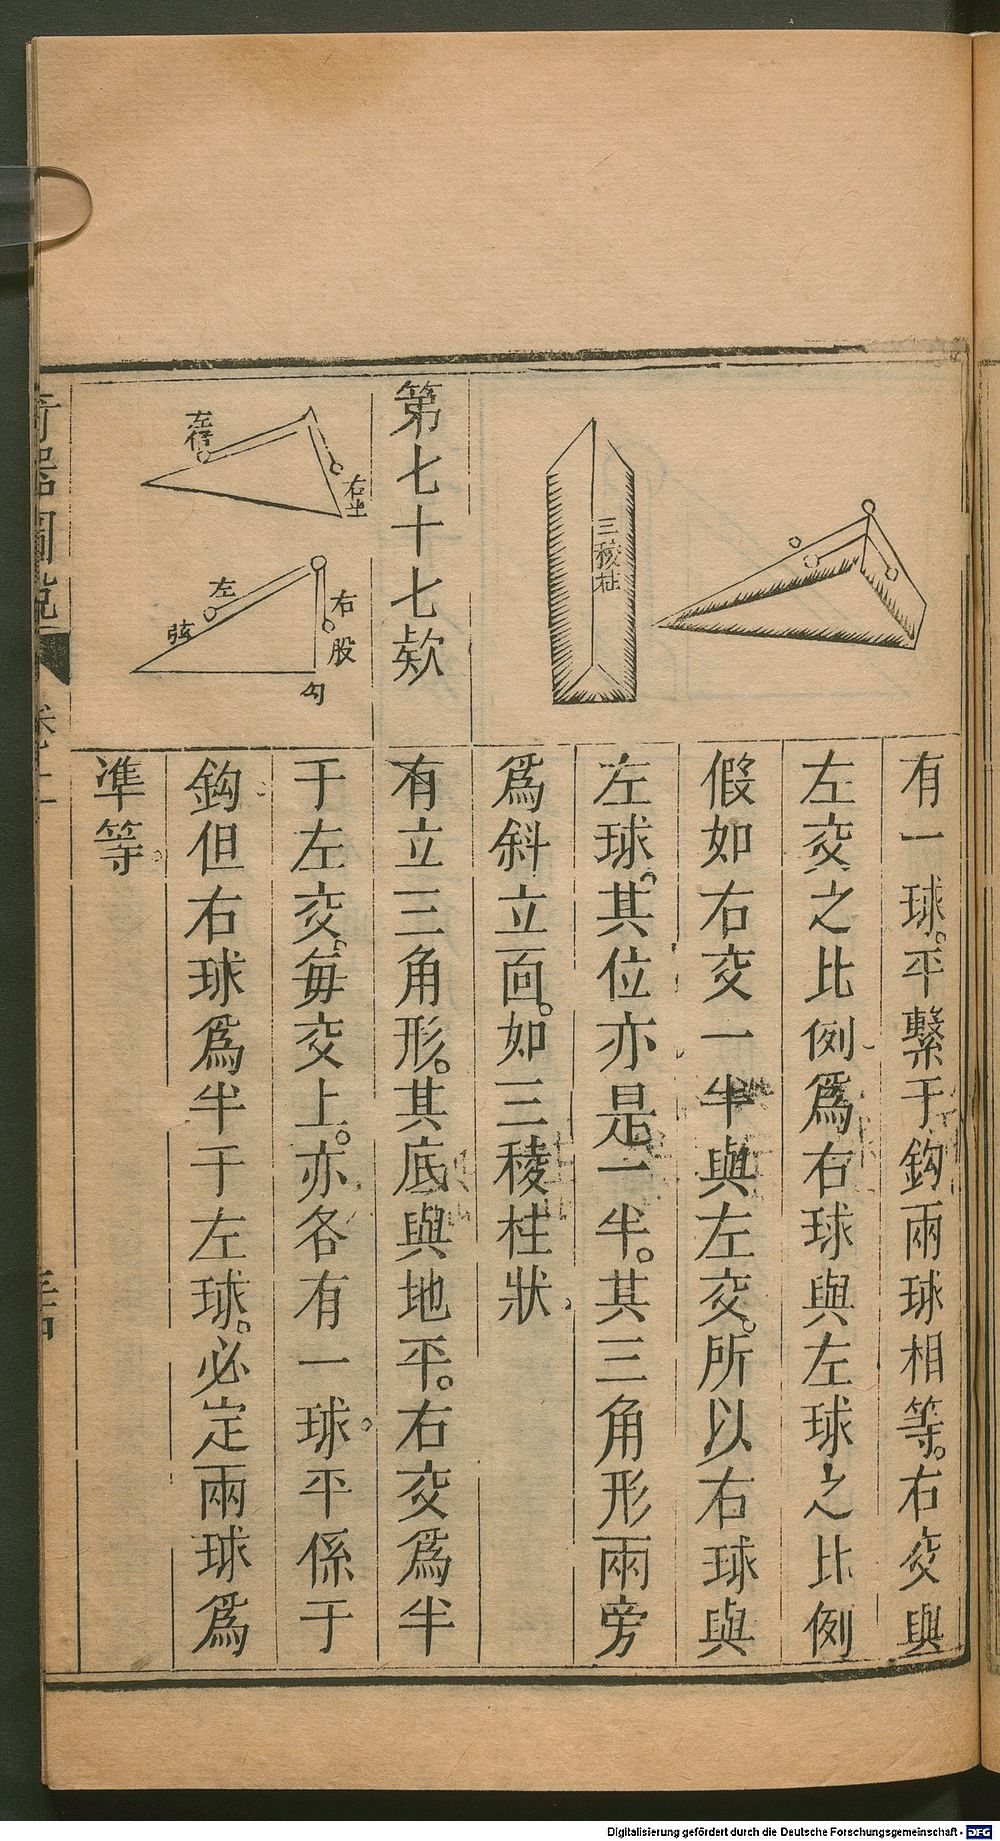 三稜柱
有一球。平繫于鈎兩球相等。右交與
左交之比例爲右球與左球之比例
假如右交一半與左交。所以右球與
左球。其位亦是一半。其三角形兩旁
爲斜立面。如三稜柱狀。
第七十七欵
左
右
左
右
弦
股
勾
有立三角形。其底與地平。右交爲半
于左交。每交上。亦各有一球。平係于
鈎但右球爲半于左球。必定兩球爲
準等。
奇器圖說
卷上
Digitalisierung gefördert durch die Deutsche Forschungsgemeinschaft - DFG